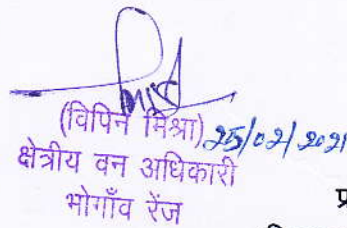 (विपिन मिश्रा) 25/02/2021
क्षेत्रीय वन अधिकारी
भोगाँव रेंज